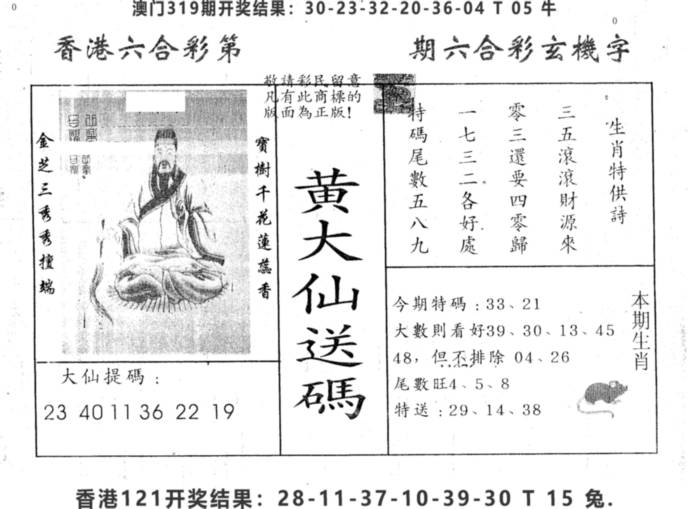 澳门319期开奖结果：30-23-32-20-36-04 T 05 牛
香港六合彩第
期六合彩玄機字
敬請彩民留意
凡有此商標的
版面為正版!
金芝三秀秀擅端
寶樹千花蓮蕊香
黄大仙送碼
生肖特供詩
三五滾滾財源來
零三還要四零歸
一七三二各好處
特碼尾數五八九
大仙提碼：
23 40 11 36 22 19
本期生肖
今期特碼：33、21
大數則看好39、30、13、45
48，但不排除 04、26
尾數旺4、5、8
特送：29、14、38
香港121开奖结果：28-11-37-10-39-30 T 15 兔.